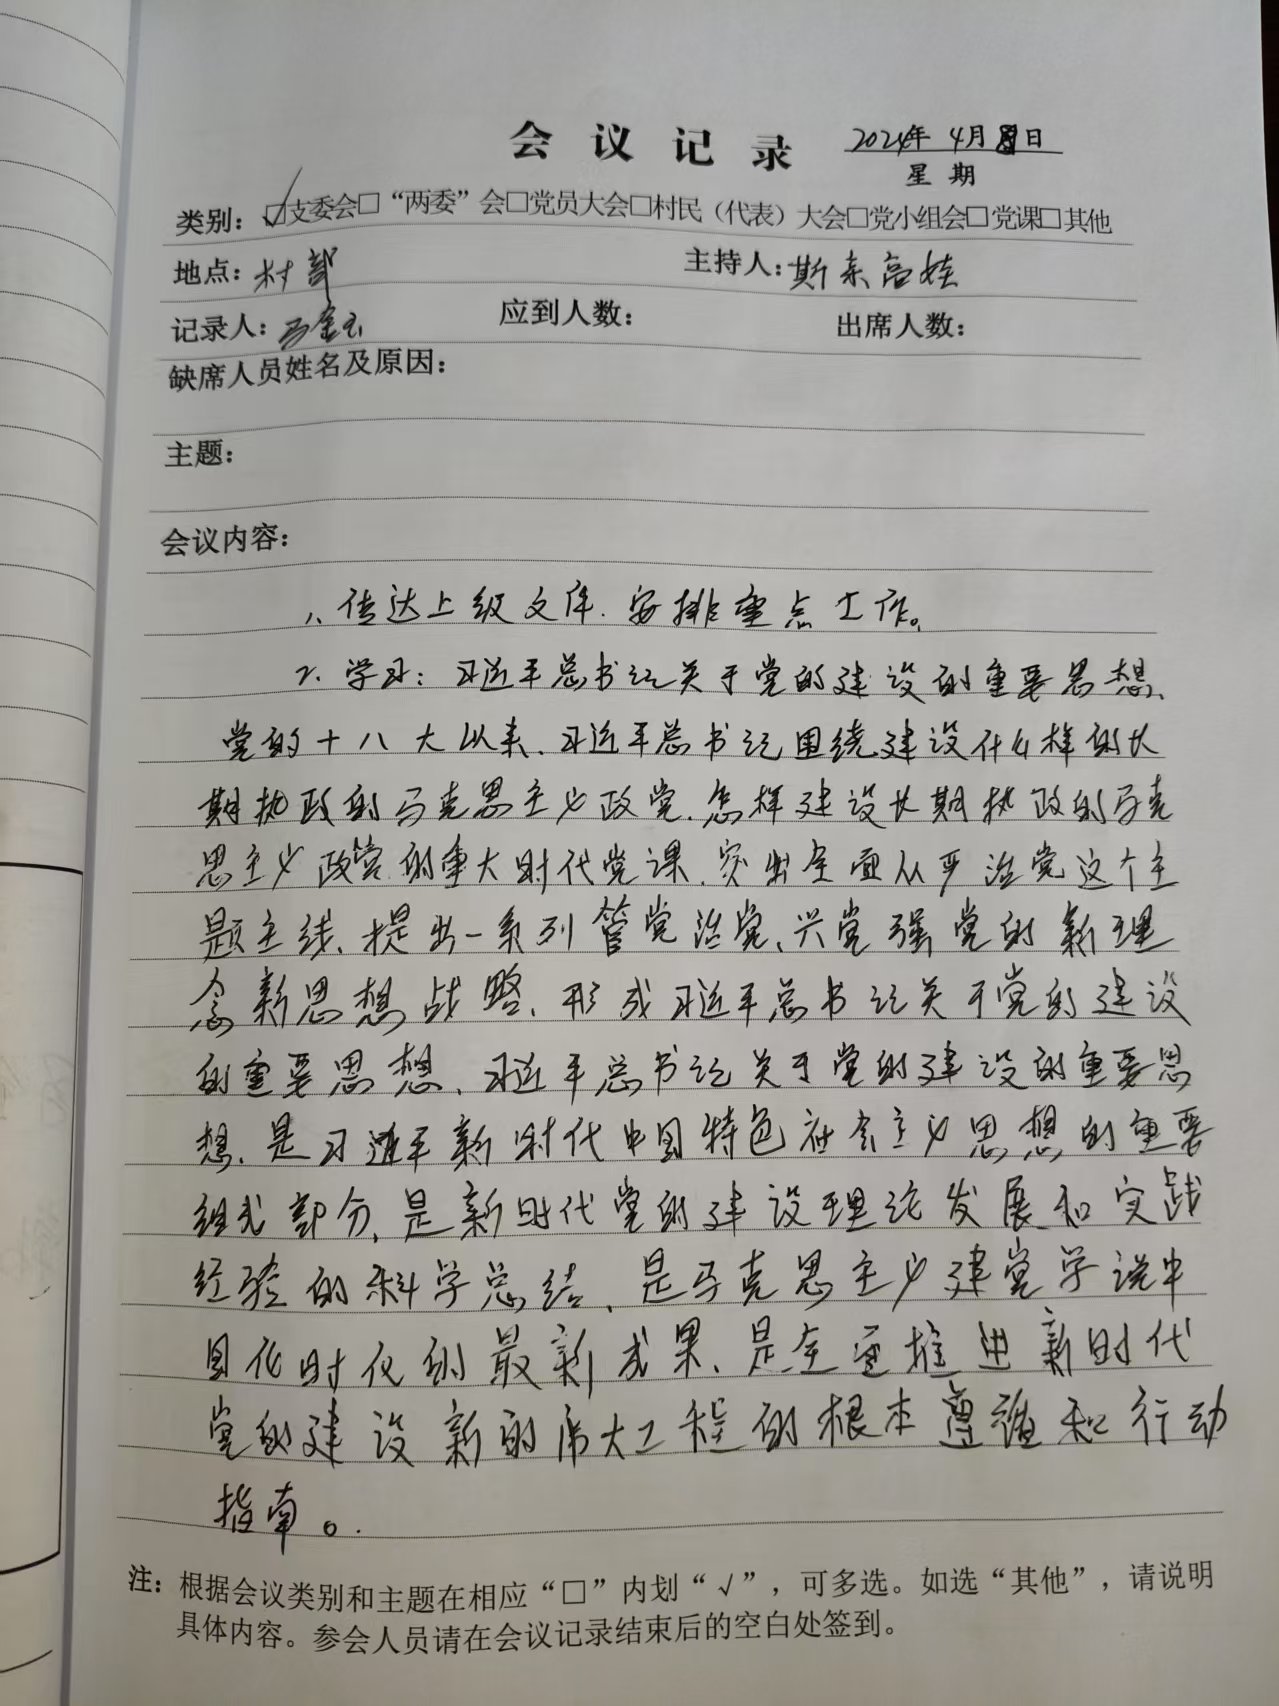 会议记录 2024年 4月 日
星期
类别：☑支委会□“两委”会□党员大会□村民（代表）大会□党小组会□党课□其他
地点：村部 主持人：斯亲高娃
记录人： 应到人数： 出席人数：
缺席人员姓名及原因：
主题：
会议内容：
1、传达上级文件、安排重点工作。
2、学习：习近平总书记关于党的建设的重要思想、
党的十八大以来、习近平总书记围绕建设什么样的长
期执政的马克思主义政党、怎样建设长期执政的马克
思主义政党的重大时代党课、突出全面从严治党这个主
题主线、提出一系列管党治党、兴党强党的新理
念新思想战略、形成习近平总书记关于党的建设
的重要思想、习近平总书记关于党的建设的重要思
想、是习近平新时代中国特色社会主义思想的重要
组成部分、是新时代党的建设理论发展和实践
经验的科学总结、是马克思主义建党学说中
国化时代的最新成果、是全面推进新时代
党的建设新的伟大工程的根本遵循和行动
指南。
注：根据会议类别和主题在相应“□”内划“√”，可多选。如选“其他”，请说明
具体内容。参会人员请在会议记录结束后的空白处签到。